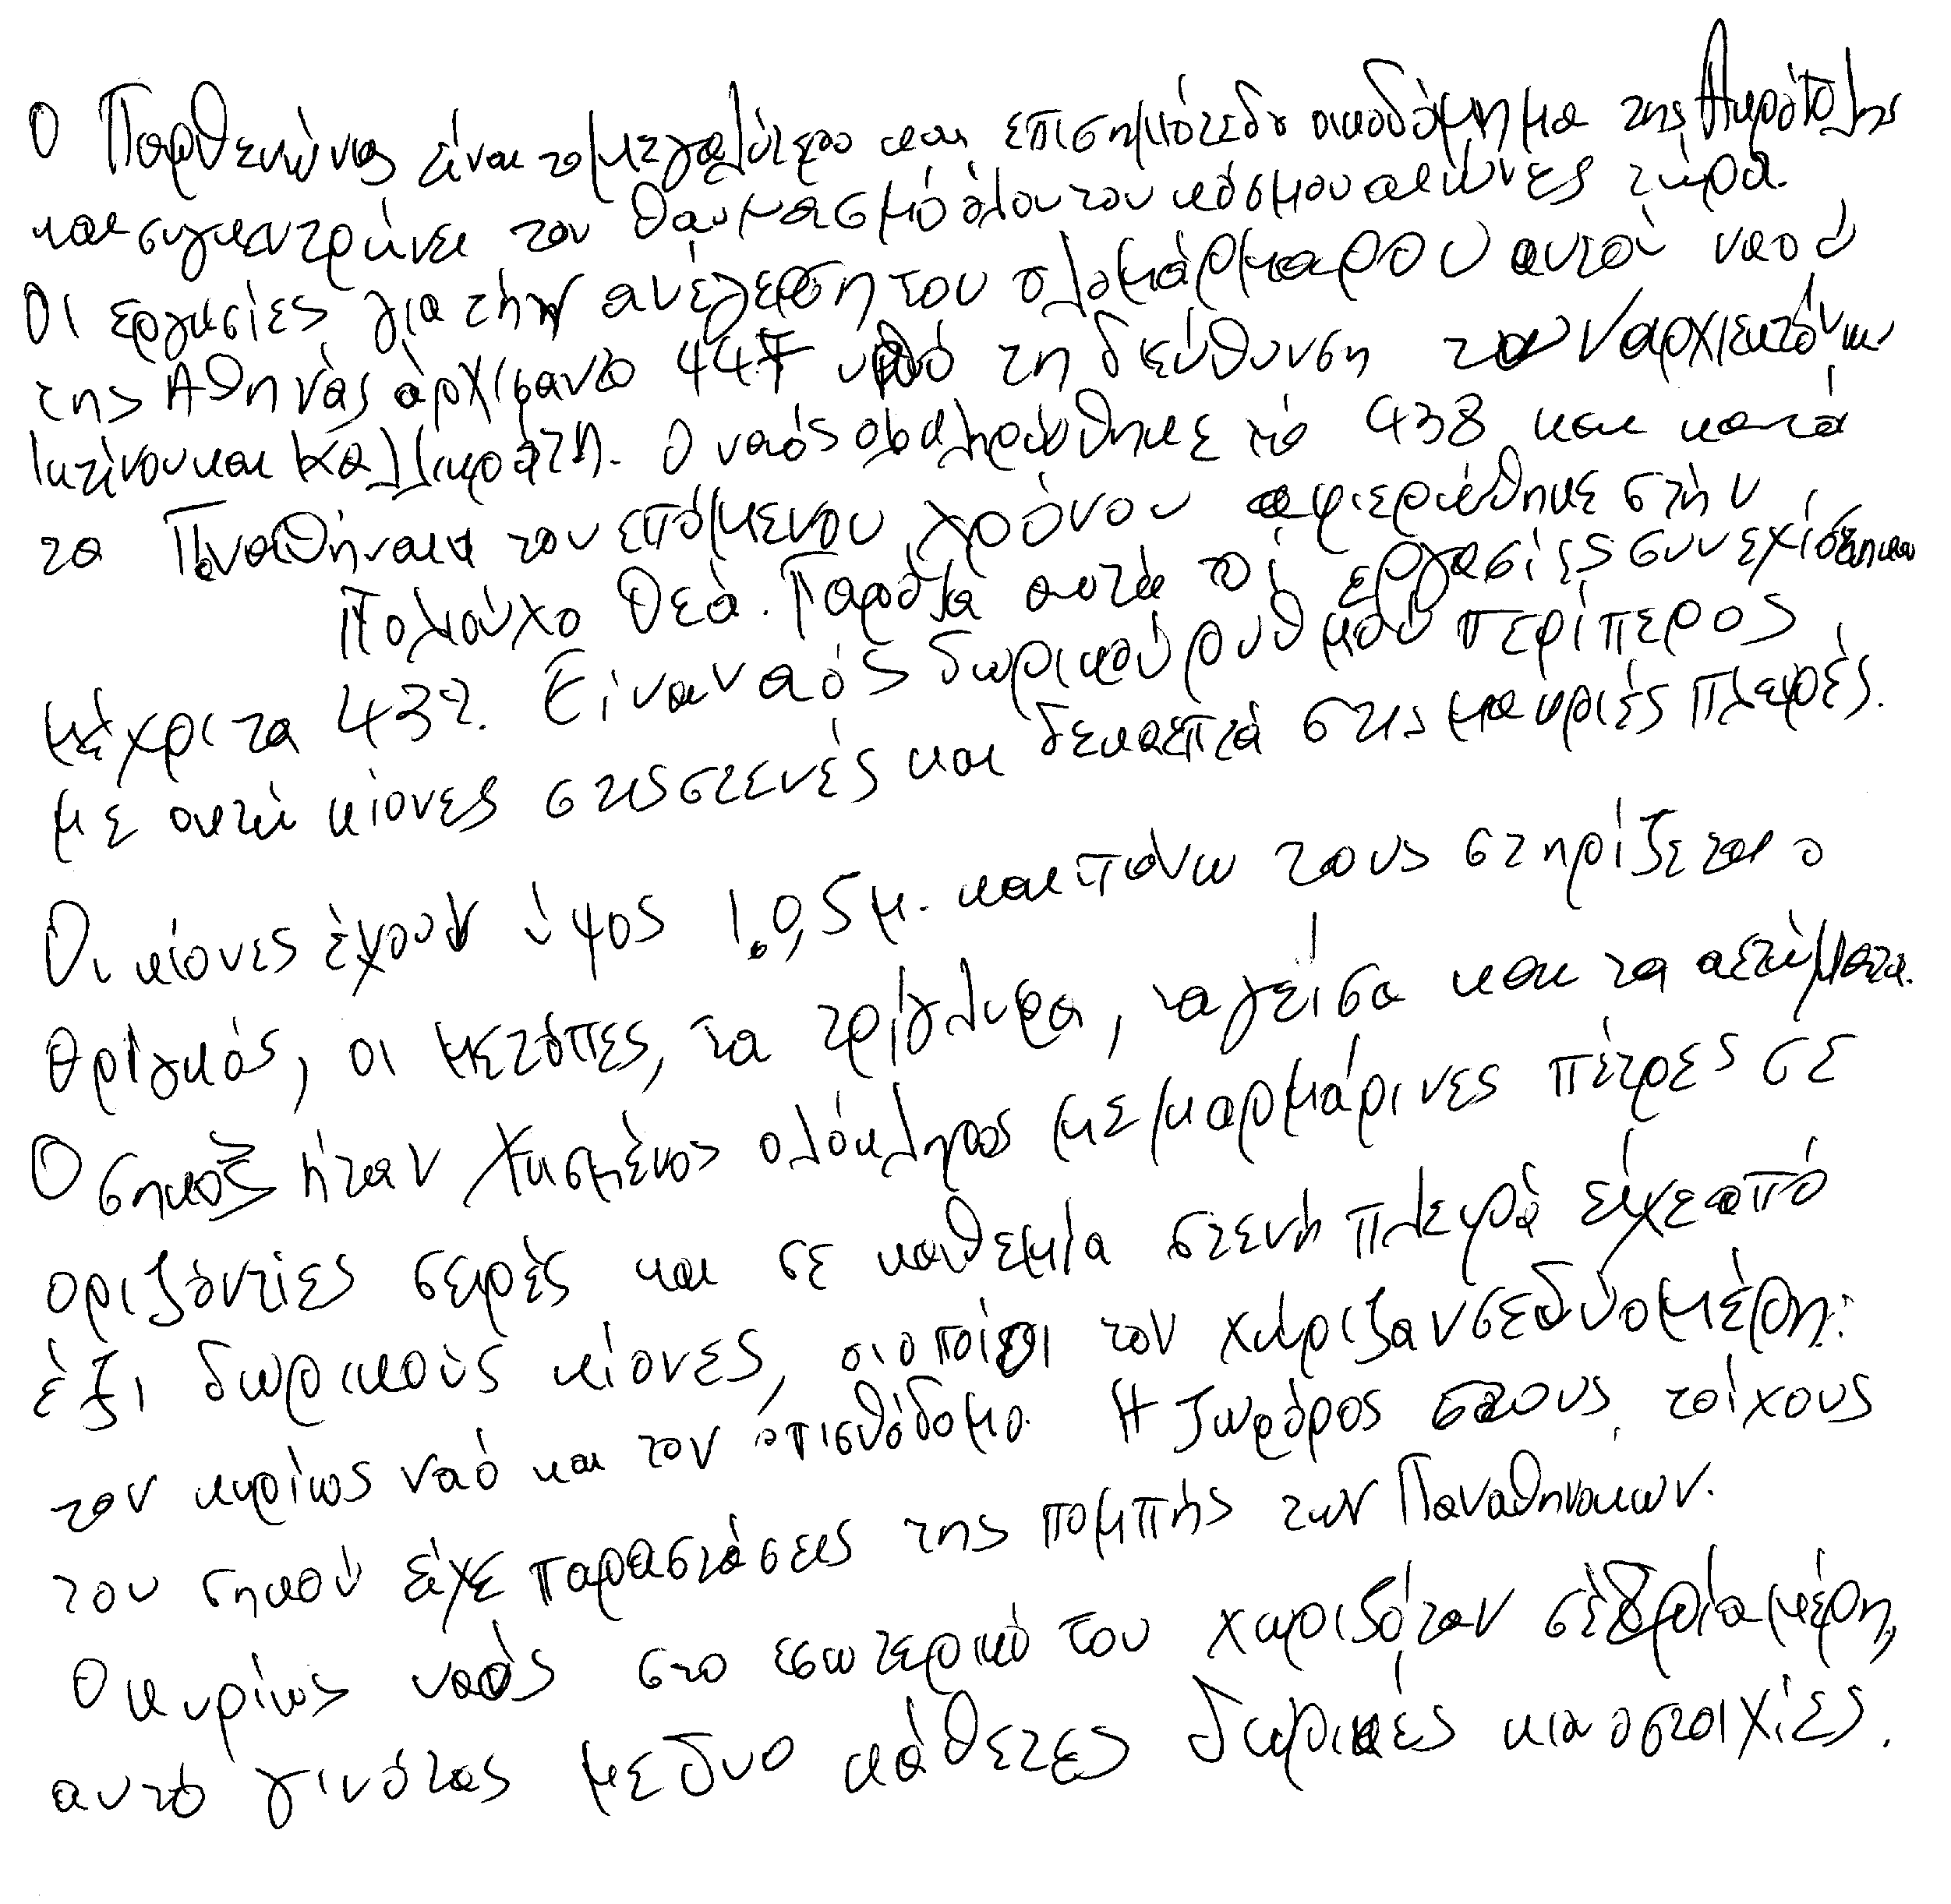 Ο Παρθενώνας είναι το μεγαλύτερο και επισημότεδο οικοδόμημα της Ακρόπολης
και συγκεντρώνει τον θαυμασμό όλου του κόσμου αιώνες τώρα.
Οι εργασίες για την ανέγερση του ολομάρμαρου αυτού ναού
της Αθηνάς άρχισαν το 447 υπό τη διεύθυνση των αρχιτεκτόνων
Ικτίνου και Καλλικράτη. Ο ναός ολοκληρώθηκε το 438 και κατά
τα Παναθήναια του επόμενου χρόνου αφιερώθηκε στήν
Πολιούχο θεά. Παρόλα αυτά οι εργασίες συνεχίστηκαν
μέχρι τα 432. Είναι ναός δωρικού ρυθμού περίπερος
με οκτώ κίονες στις στενές και δεκαεπτά στις μακριές πλευρές.
Οι κίονες έχουν ύψος 10,5 μ. και πάνω τους στηρίζεται ο
θριγκός, οι μετόπες, τα τρίγλυφα, τα γείσα και τα αετώματα.
Ο σηκός ήταν χτισμένος ολόκληρος με μαρμάρινες πέτρες σε
οριζόντιες σειρές και σε καθεμία στενή πλευρά είχε από
έξι δωρικούς κίονες, οι οποίοι τον χώριζαν σε δύο μέρη:
τον κυρίως ναό και τον οπισθόδομο. Η ζωφόρος στους τοίχους
του σηκού είχε παραστάσεις της πομπής των Παναθηναίων.
Ο κυρίως ναός στο εσωτερικό του χωριζόταν σε τρία μέρη,
αυτό γινόταν με δυο κάθετες δωρικές κιονοστοιχίες.